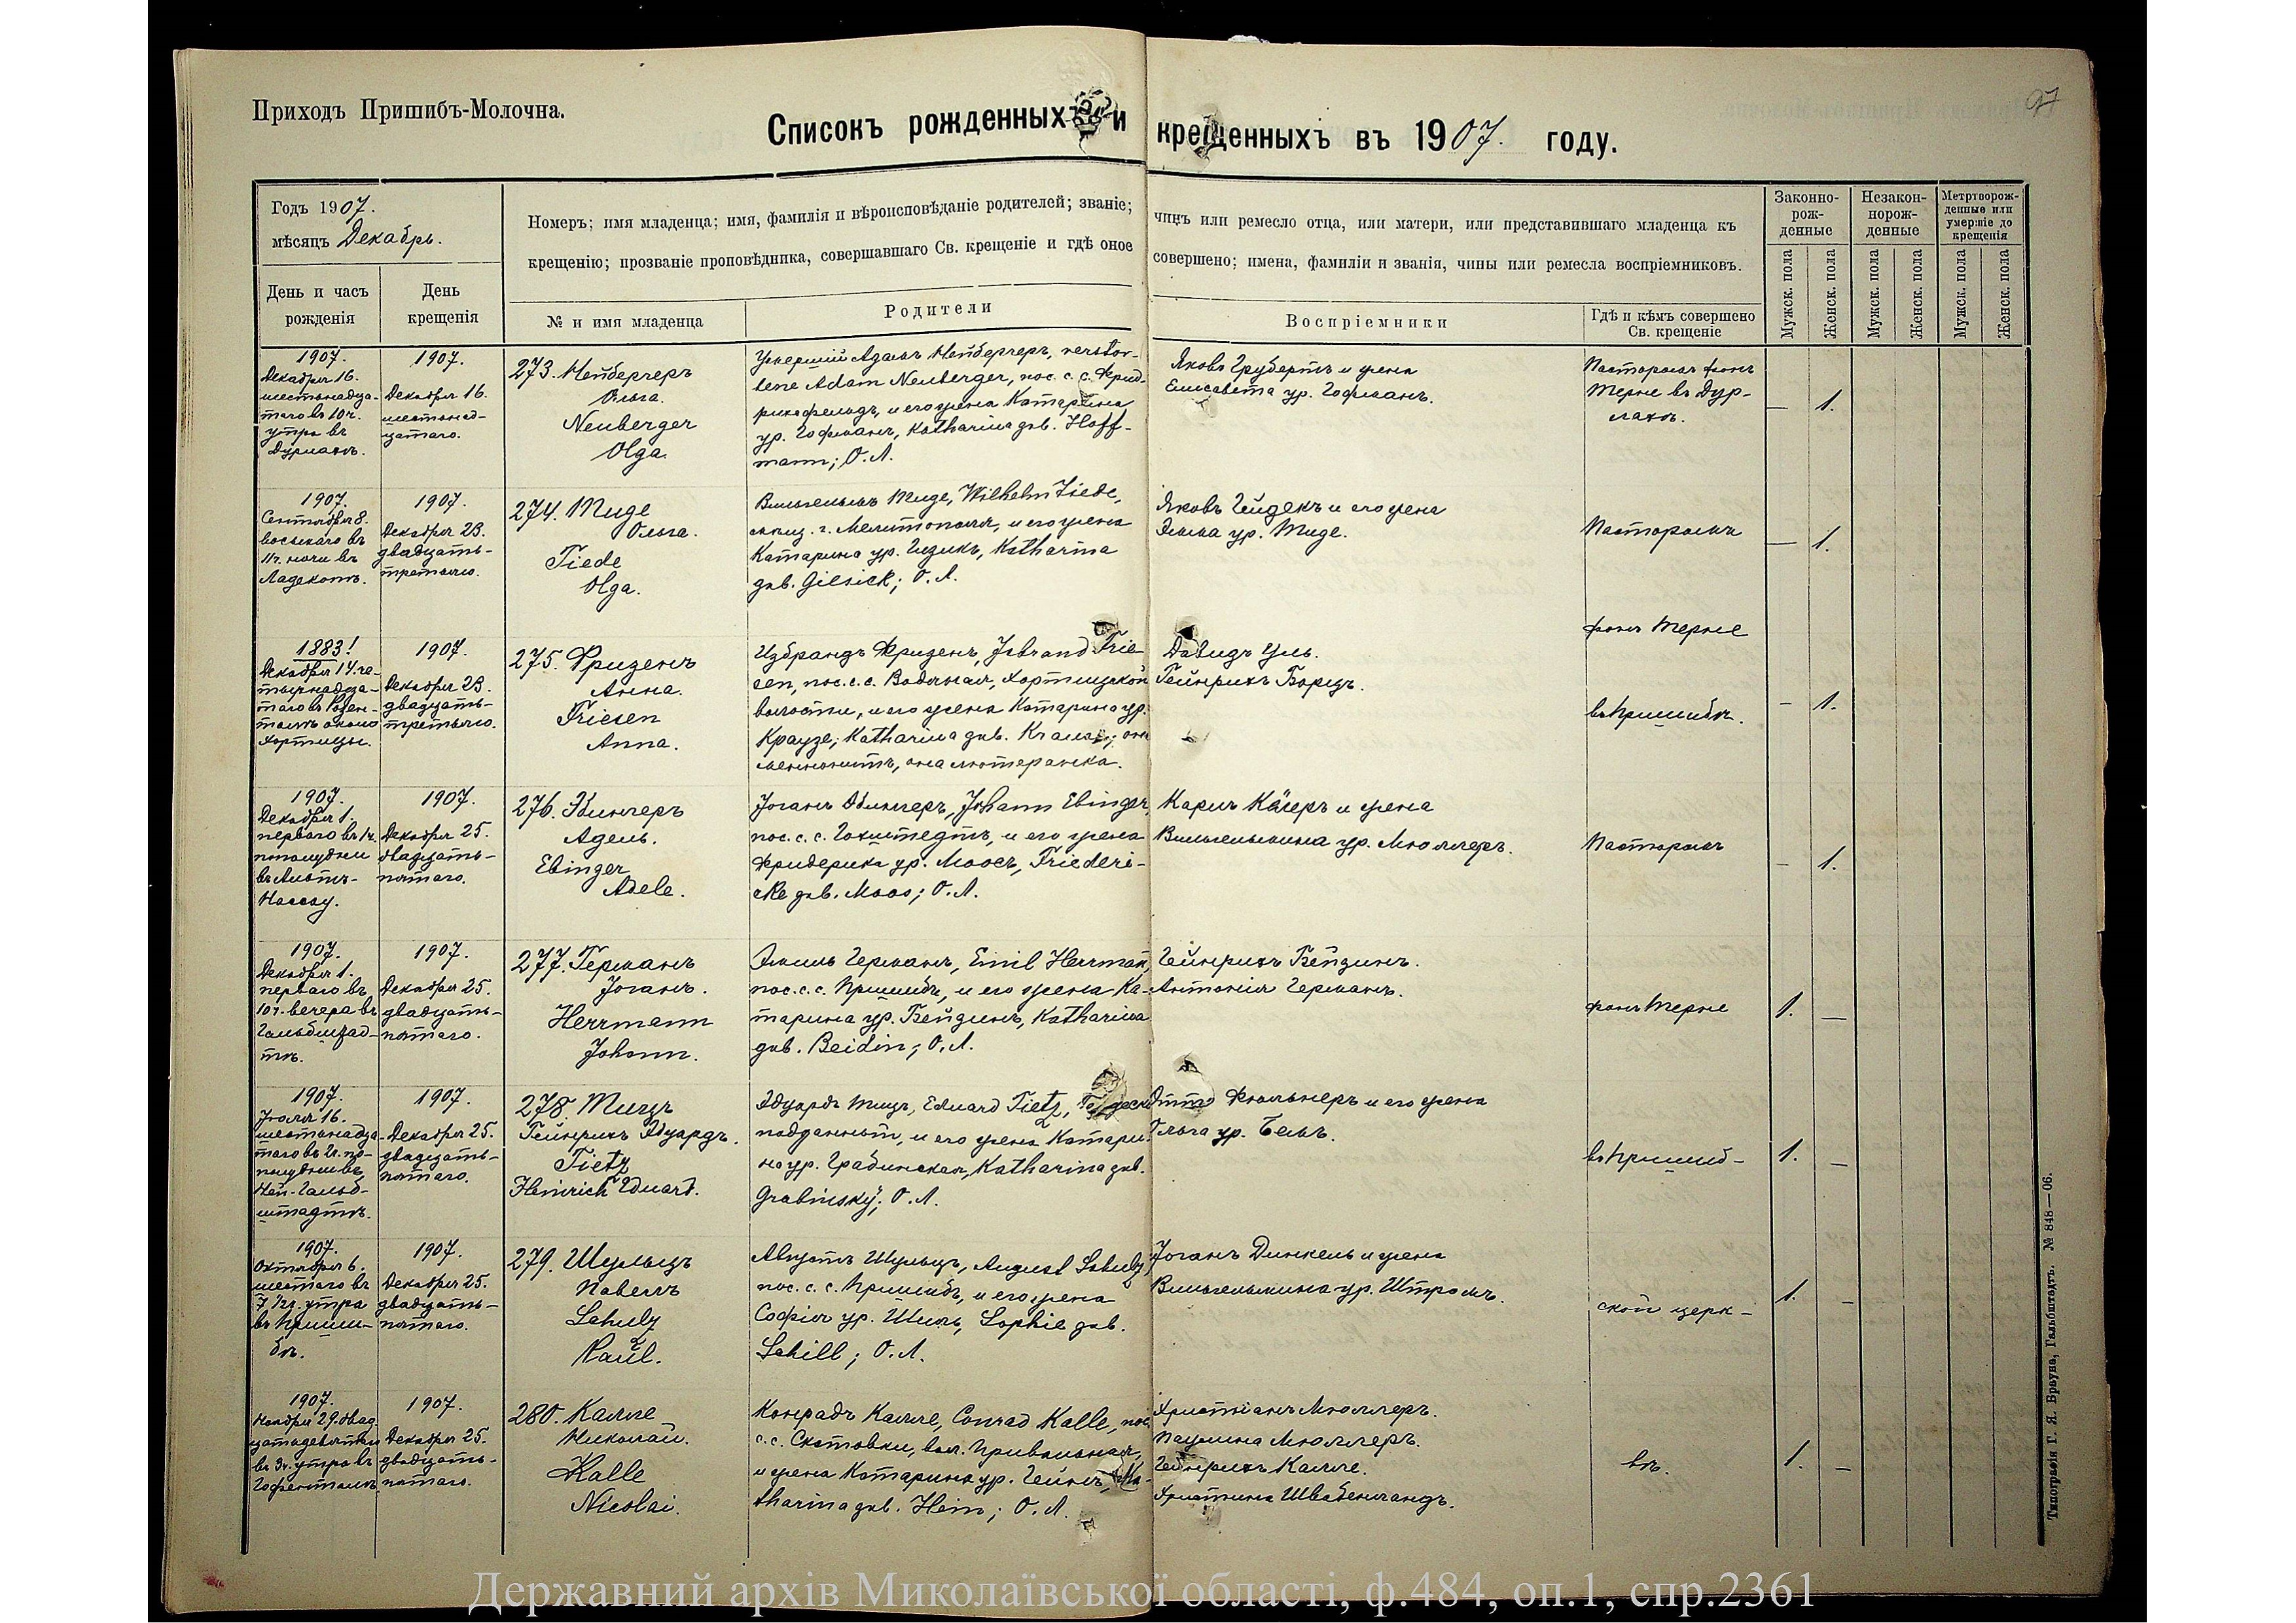 Приходъ Пришибъ-Молочна.
97
Списокъ рожденныхъ и крещенныхъ въ 1907. году.
Годъ 1907.
мѣсяцъ Декабрь.
Номеръ; имя младенца; имя, фамилія и вѣроисповѣданіе родителей; званіе; чинъ или ремесло отца, или матери, или представившаго младенца къ
крещенію; прозваніе проповѣдника, совершавшаго Св. крещеніе и гдѣ оное совершено; имена, фамиліи и званія, чины или ремесла воспріемниковъ.
Законно-
рож-
денные
Незакон-
норож-
денные
Метртворож-
денные или
умершіе до
крещенія
День и часъ
рожденія
День
крещенія
№ и имя младенца
Родители
Воспріемники
Гдѣ и кѣмъ совершено
Св. крещеніе
Мужск. пола
Женск. пола
Мужск. пола
Женск. пола
Мужск. пола
Женск. пола
1907.
Декабря 16.
шестьнадца-
таго въ 10 ч.
утра въ
Дурлахъ.
1907.
Декабря 16.
шестьнад-
цатаго.
273. Нейбергеръ
Ольга.
Neuberger
Olga.
Умершій Адамъ Нейбергеръ, verstor-
bene Adam Neuberger, пос. с. с. Фрид-
рихсфельдъ, и его жена Катарина
ур. Гофманъ, Katharina geb. Hoff-
mann; О. Л.
Яковъ Грубертъ и жена
Елисавета ур. Гофманъ.
Пасторомъ фонъ
Терне въ Дур-
лахъ.
— 1.
1907.
Сентября 8.
восьмаго въ
11 ч. ночи въ
Ладекопъ.
1907.
Декабря 23.
двадцать-
третьяго.
274. Тиде
Ольга.
Tiede
Olga.
Вильгельмъ Тиде, Wilhelm Tiede,
мѣщ. г. Мелитополя, и его жена
Катарина ур. Гизикъ, Katharina
geb. Giesick; О. Л.
Яковъ Гейдекъ и его жена
Эмма ур. Тиде.
Пасторомъ
— 1.
1883!
Декабря 14. че-
тырнадца-
таго въ Розен-
талѣ около
Хортицы.
1907.
Декабря 23.
двадцать-
третьяго.
275. Фризенъ
Анна.
Friesen
Anna.
Избрандъ Фризенъ, Isbrand Frie-
sen, пос. с. с. Водяная, Хортицкой
волости, и его жена Катарина ур.
Краузе; Katharina geb. Krause; онъ
меннонитъ, она лютеранка.
Давидъ Уль.
Гейнрихъ Бордъ.
фонъ Терне
въ Пришибѣ.
— 1.
1907.
Декабря 1.
перваго въ 1 ч.
пополудни
въ Альтъ-
Нассау.
1907.
Декабря 25.
двадцать-
пятаго.
276. Эбингеръ
Адель.
Ebinger
Adele.
Іоганъ Эбингеръ, Johann Ebinger,
пос. с. с. Гохштедтъ, и его жена
Фридерика ур. Моосъ, Friederi-
cke geb. Moos; О. Л.
Карлъ Кäгеръ и жена
Вильгельмина ур. Мюллеръ.
Пасторомъ
— 1.
1907.
Декабря 1.
перваго въ
10 ч. вечера въ
Гальбштад-
тъ.
1907.
Декабря 25.
двадцать-
пятаго.
277. Германъ
Іоганъ.
Herrmann
Johann.
Эмиль Германъ, Emil Herrmann,
пос. с. с. Пришибъ, и его жена Ка-
тарина ур. Бейдинъ, Katharina
geb. Beidin; О. Л.
Гейнрихъ Бейдинъ.
Антонія Германъ.
фонъ Терне
1. —
1907.
Іюля 16.
шестьнадца-
таго въ 2 ч. по-
полудни въ
Ней-Гальб-
штадтъ.
1907.
Декабря 25.
двадцать-
пятаго.
278. Тицъ
Гейнрихъ Эдуардъ.
Tietz
Heinrich Eduard.
Эдуардъ Тицъ, Eduard Tietz,
подданный, и его жена Катари-
на ур. Грабинская, Katharina geb.
Grabinsky; О. Л.
Отто Фюльнеръ и его жена
Ольга ур. Бемъ.
въ Пришиб-
1. —
1907.
Октября 6.
шестаго въ
7 ½ ч. утра
въ Приши-
бѣ.
1907.
Декабря 25.
двадцать-
пятаго.
279. Шульцъ
Павелъ
Schulz
Paul.
Августъ Шульцъ, August Schulz,
пос. с. с. Пришибъ, и его жена
Софія ур. Шиль, Sophie geb.
Schill; О. Л.
Іоганъ Динкель и жена
Вильгельмина ур. Штромъ.
ской церк-
1. —
1907.
Ноября 29. двад-
цатьдевятаго
въ 3 ч. утра въ
Гофенталъ.
1907.
Декабря 25.
двадцать-
пятаго.
280. Калле
Николай.
Kalle
Nicolai.
Конрадъ Калле, Conrad Kalle, пос.
с. с. Скотовки, вол. Привольная,
и жена Катарина ур. Гейнъ, Ka-
tharina geb. Hein; О. Л.
Христіанъ Мюллеръ.
Паулина Мюллеръ.
Гейнрихъ Калле.
Христина Швабенландъ.
въ.
1. —
Типографія Г. Я. Брауна, Гальбштадтъ. № 848—06.
Державний архів Миколаївської області, ф.484, оп.1, спр.2361